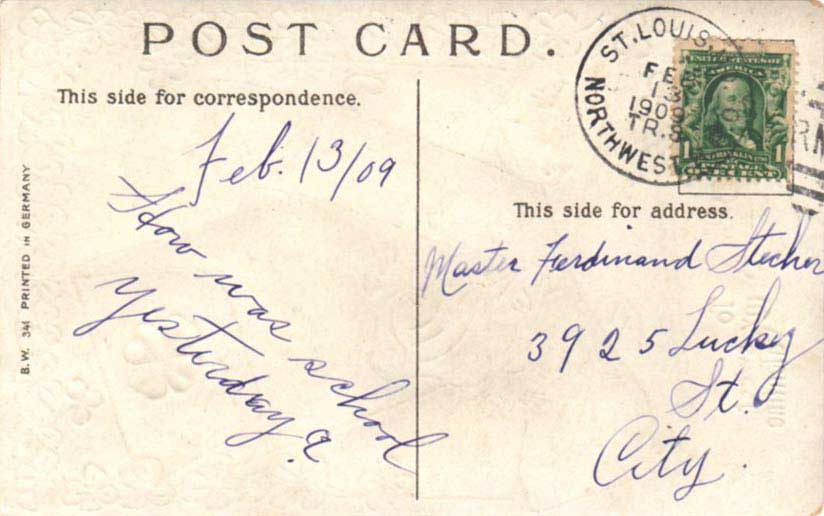 POST CARD.
This side for correspondence.
Feb. 13/09
How was school
yesterday?
B.W. 341 PRINTED IN GERMANY
ST. LOUIS,
FE
13
1909
TR.S
NORTHWEST
UNITED STATES OF
AMERICA
1 1
FRANKLIN
CENT
This side for address.
Master Ferdinand Stecher
3925 Lucky
St.
City.